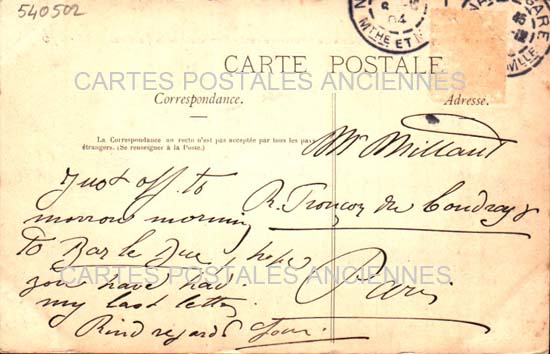 540502
CARTE POSTALE
CARTES POSTALES ANCIENNES
Correspondance.
Adresse.
La Correspondance au recto n'est pas acceptée par tous les pays
étrangers. (Se renseigner à la Poste.)
Just off to
morrow morning
to Bar le Duc, hope
you have had
my last letter.
Kind regards
Mr Millaut
R. Tronçon du Coudray
Paris
CARTES POSTALES ANCIENNES
MTHE ET M
04
GARE